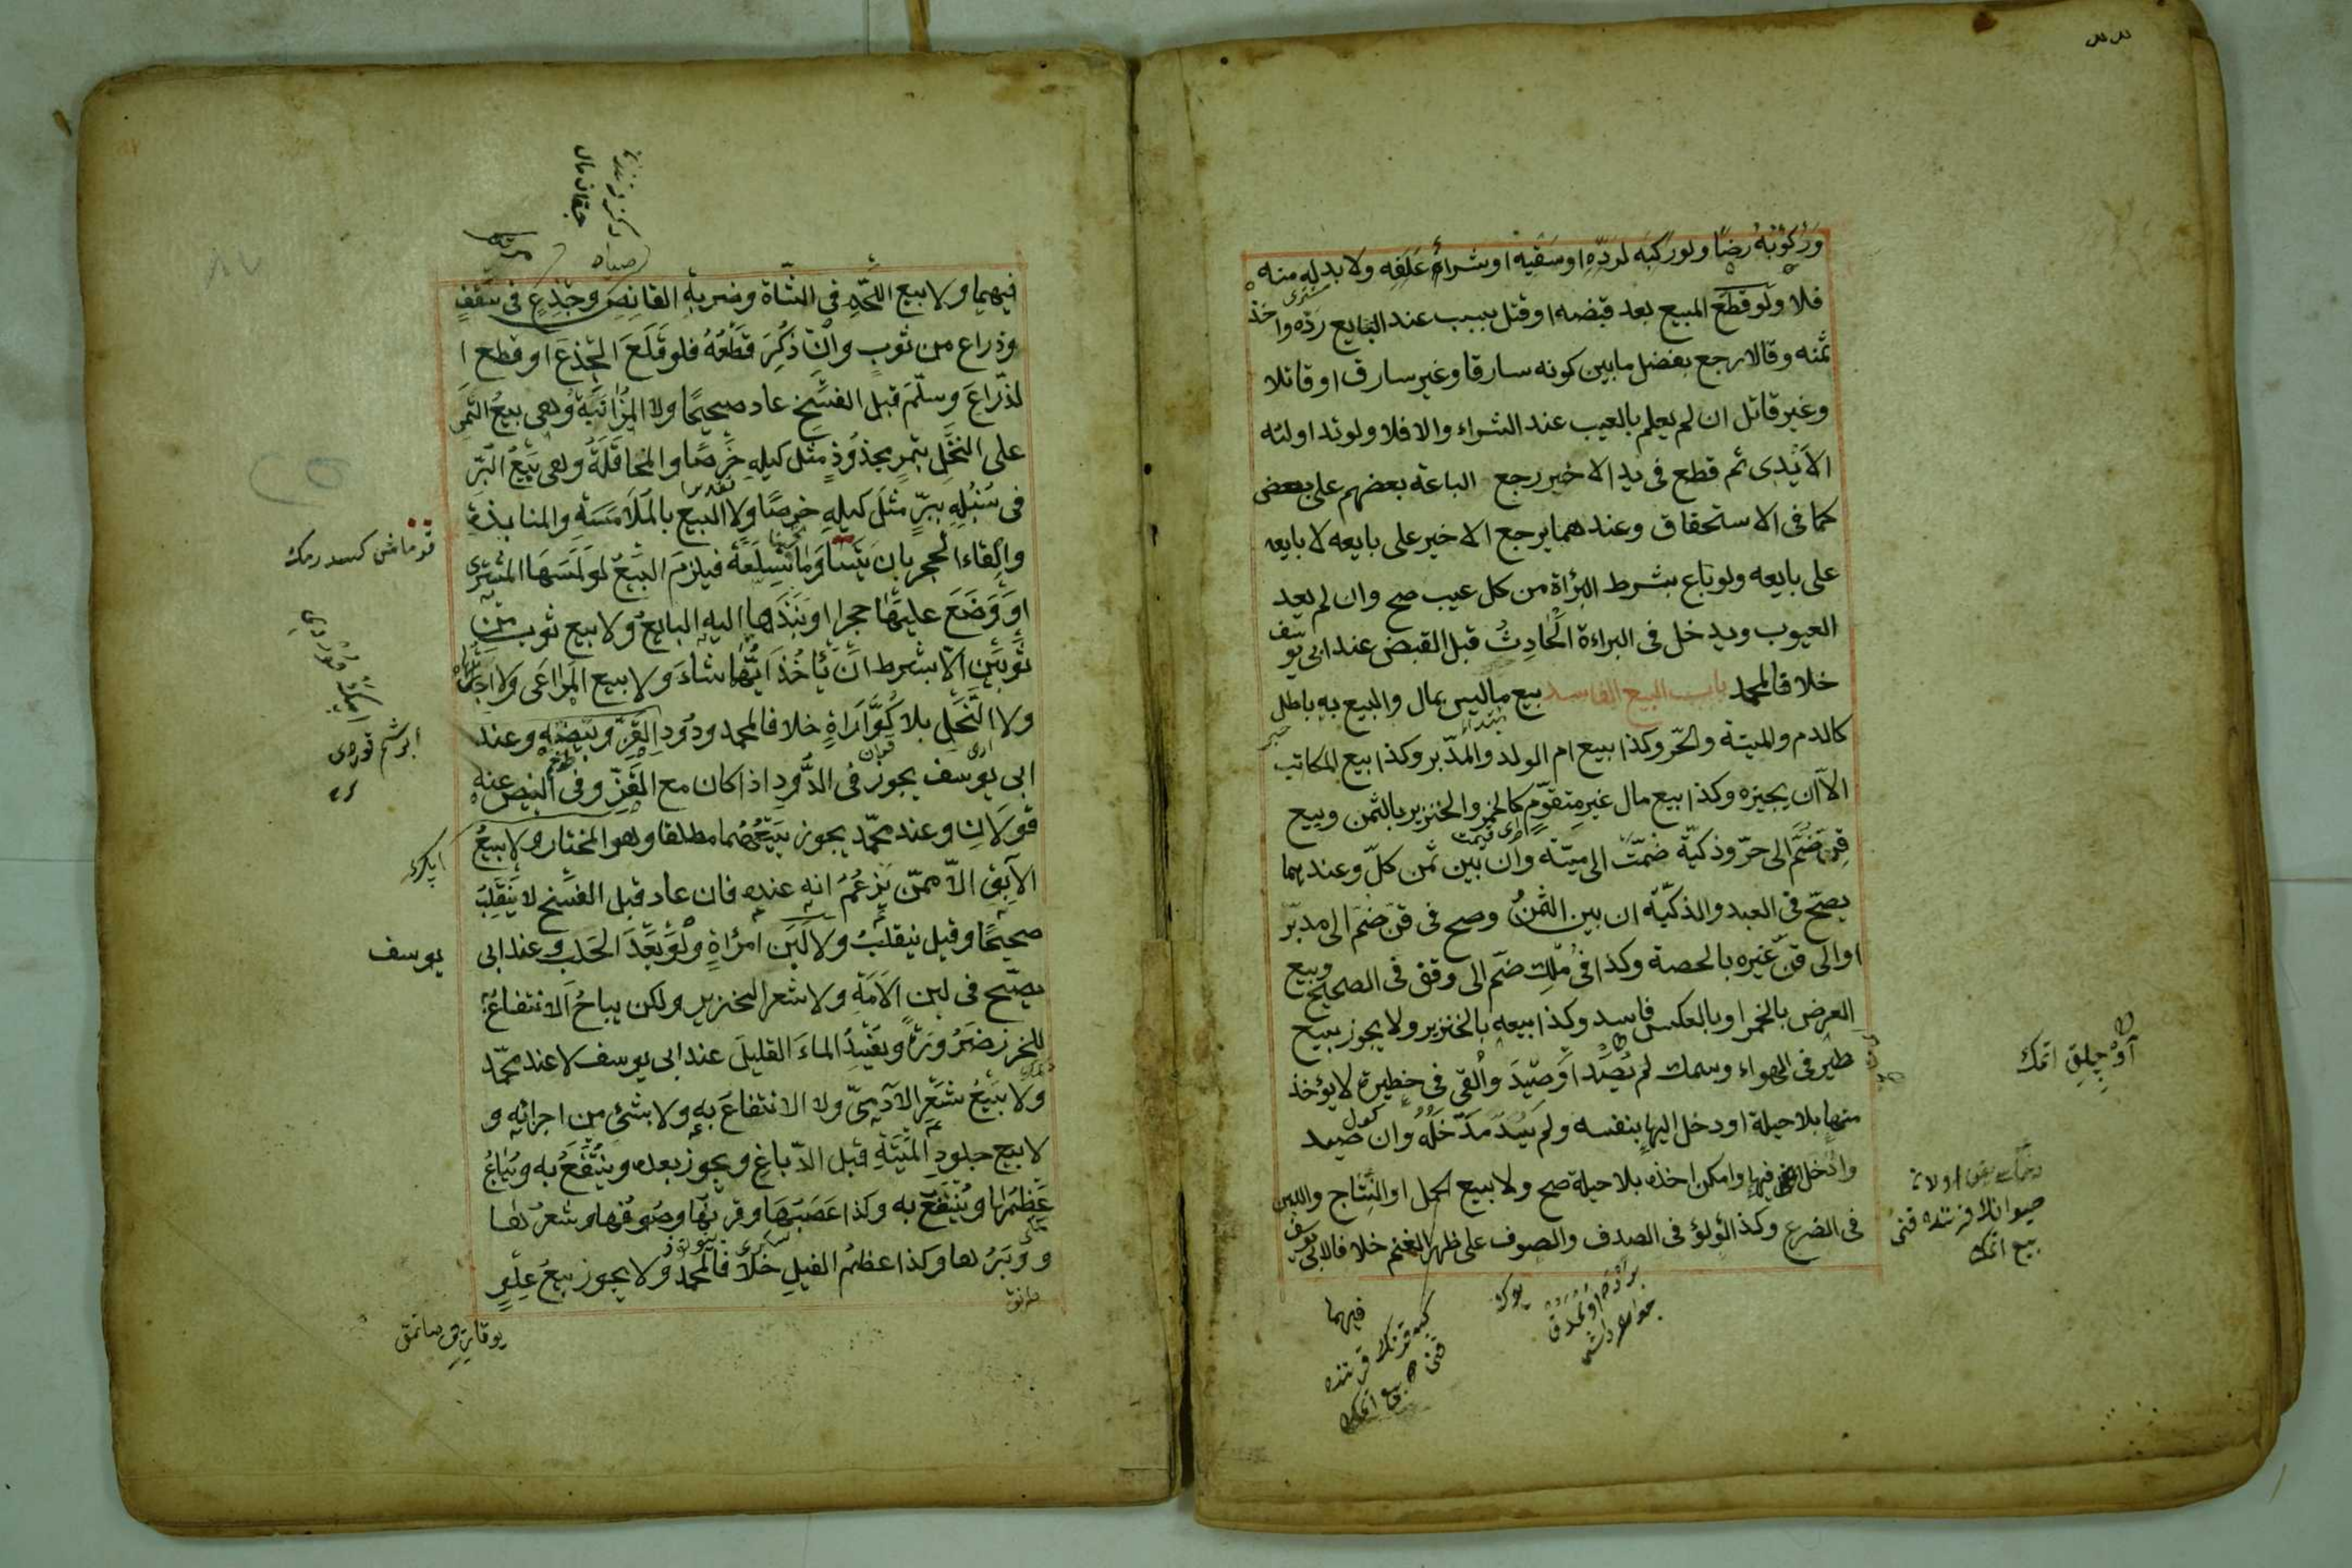 وَرُكُوْبُهُ رِضًا ولو رَكِبَه لردّه او سَقيِه او شراء عَلَفِه ولا بد له منه
فلا ولو قُطِعَ المبيع بعد قبضه او قتل بسبب عند البايع ردّه واخذ
ثمنه وقالا يرجع بفضل ما بين كونه سارقا وغير سارق او قاتلا
وغير قاتل ان لم يعلم بالعيب عند الشراء والا فلا ولو تداولته
الأيْدى ثم قطع فى يد الاخير رجع الباعة بعضهم على بعض
كما فى الاستحقاق وعندهما يرجع الاخير على بايعه لا بايعه
على بايعه ولو باع بشرط البرأة من كل عيب صح وان لم يعد
العيوب ويدخل فى البراءة الْحَادِثُ قبل القبض عند ابى يوسف
خلافا لمحمد باب البيع الفاسد بيع ما ليس بمال والبيع به باطل
كالدم والميتة والحرّ وكذا بيع ام الولد والمدّبر وكذا بيع المكاتب
الّا ان يجيزه وكذا بيع مال غير متقوّم كالخمر والخنزير بالثمن وبيع
قِنّ ضُمَّ الى حرّ وذكيّة ضمّت الى ميتة وان بين ثمن كلّ وعندهما
يصحّ فى العبد والذكيّة ان بين الثمن وصح فى قن ضم الى مدبّر
او الى قنّ غيره بالحصة وكذا فى ملك ضمّ الى وقف فى الصحيح وبيع
العرض بالخمر او بالعكس فاسد وكذا بيعه بالخنزير ولا يجوز بيع
طير فى الهواء وسمك لم يُصَد او صيدَ واُلقى فى حظيرة لا يؤخذ
منها بلا حيلة او دخل اليها بنفسه ولم يُسَدّ مَدْخَلُهُ وان صيد
واُدخل فيها وامكن اخذه بلا حيلة صح ولا بيع الحمل او النِّتَاج واللبن
فى الضرع وكذا الؤلؤ فى الصدف والصوف على ظهر الغنم خلافا لابى يوسف
فيهما
آوْ چِلِق اتمك
بيع اتمك
فيهما ولا بيع اللّحم فى الشّاة وضربة القانِص وجِذْع فى سَقفٍ
وذراع من ثوب وان ذُكِرَ قَطْعُهُ فلو قَلَعَ الْجِذعَ او قطع ا
لذّراعَ وسلّمَ قبل الفسْخ عاد صحيحًا ولا المُزَابَنَة وهى بيعُ الثمَر
على النخْلِ بتمرٍ مجذُوذٍ مثل كيله خَرصًا والمُحاقَلَةُ وهى بَيعُ البُرّ
فى سُنْبُلِه ببرّ مثلَ كيلِه خرصًا ولا البيع بالمُلَامَسَة والمنابذة
وإلقاء الحجر بان يَتَسَاوَمَا سِلعَةً فيلزمَ البَيْعُ لو لَمَسَهَا المشترى
او وَضَعَ عليهَا حجرا او نَبَذَهَا اليه البايعُ ولا بيع ثوب من
ثَوبَيْنِ الّا بشرط اَنْ يَأْخُذَ اَيّهُما شاءَ ولا بيع المَراعَى ولا اجارتها
ولا النَّحْلِ بلا كُوَّارَاةٍ خلافا لمحمد ودُودِ القَزّ وبَيْضِه وعند
ابى يوسف يجوز فى الدُّودِ اذا كان مع القَزّ وفى البيض عنه
قَوْلَانِ وعند محمّد يجوز بَيْعُهُما مطلقا وهو المختار ولا بيعُ
الآبِقِ الّا ممّن يَزعُمُ انه عنده فان عاد قبل الفسْخ لا يَنْقَلِبُ
صحيحًا وقيل ينقلبُ ولا لَبَن امرأةٍ ولَوْ بَعْدَ الحَلَبِ وعند ابى
يوسف
يصحّ فى لبن الاَمَة ولا شعر الخنزير ولكن يباحُ الانتفاعُ به
للخرز ضَرُورَةً ويُفْسِدُ الماءَ القليلَ عند ابى يوسف لا عند محمّد
ولا بَيْعُ شَعْرِ الآدمىّ ولا الانتفاعَ به ولا بشئ من اجزائه و
لا بيع جلودِ المَيْتَةِ قبل الدّباغِ ويجوز بعده ويُنْتَفَعُ به ويُبَاعُ
عَظْمُهَا ويُنْتَفَعُ به وكذا عَصَبُهَا وقرنُهَا وصُوفُهَا وشعرُها
ووَبَرُها وكذا عظمُ الفيلِ خلافا لمحمّد ولا يجوز بيعُ عِلْوٍ